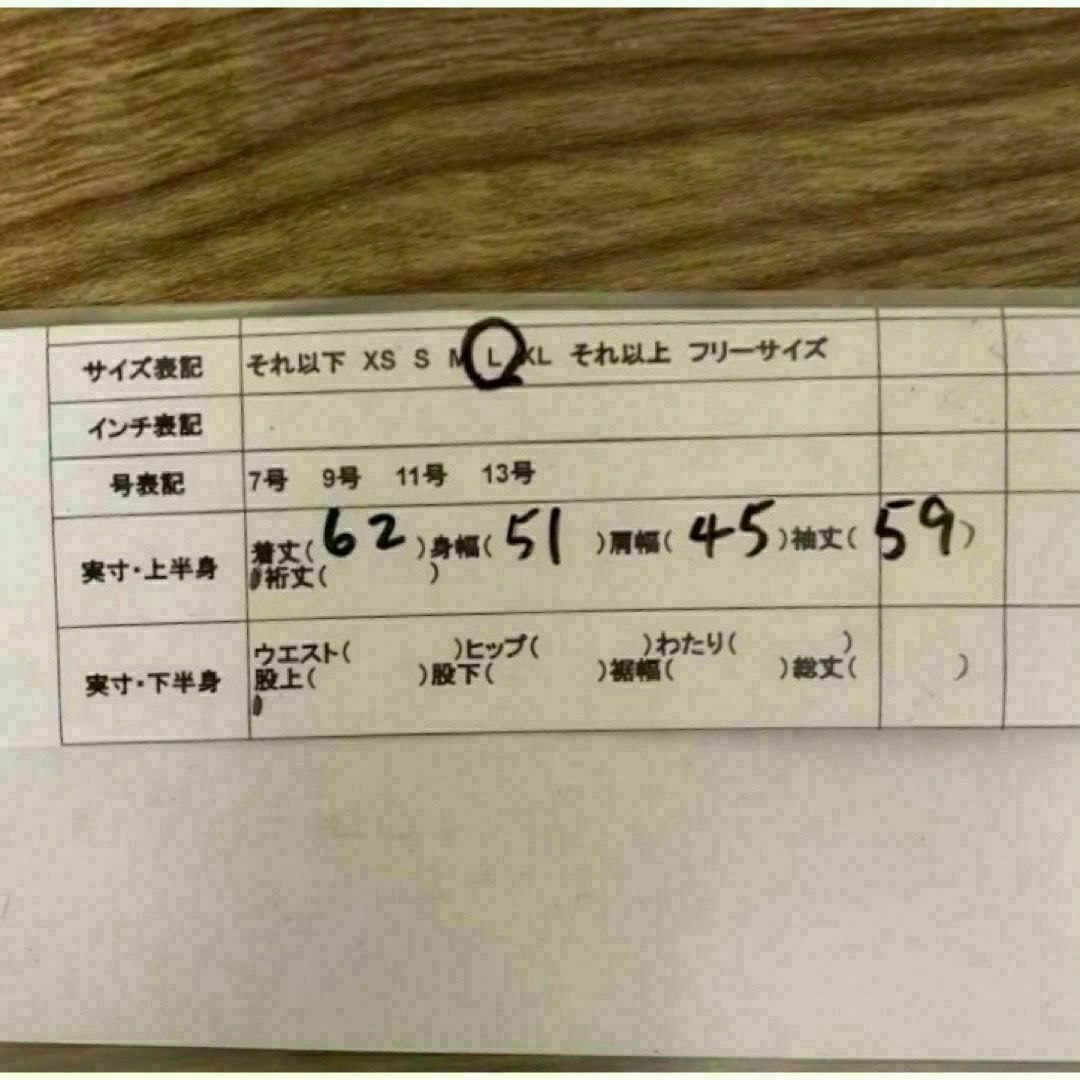 サイズ表記 それ以下 XS S M L XL それ以上 フリーサイズ
インチ表記
号表記 7号 9号 11号 13号
実寸・上半身 着丈(62)身幅(51)肩幅(45)袖丈(59)
裄丈( )
実寸・下半身 ウエスト( )ヒップ( )わたり( )
股上( )股下( )裾幅( )総丈( )